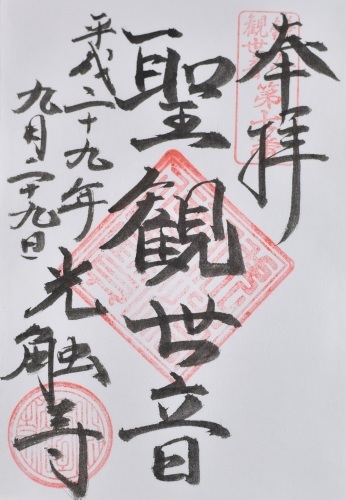 奉拝
聖観世音
平成二十九年
九月二十九日
光触寺